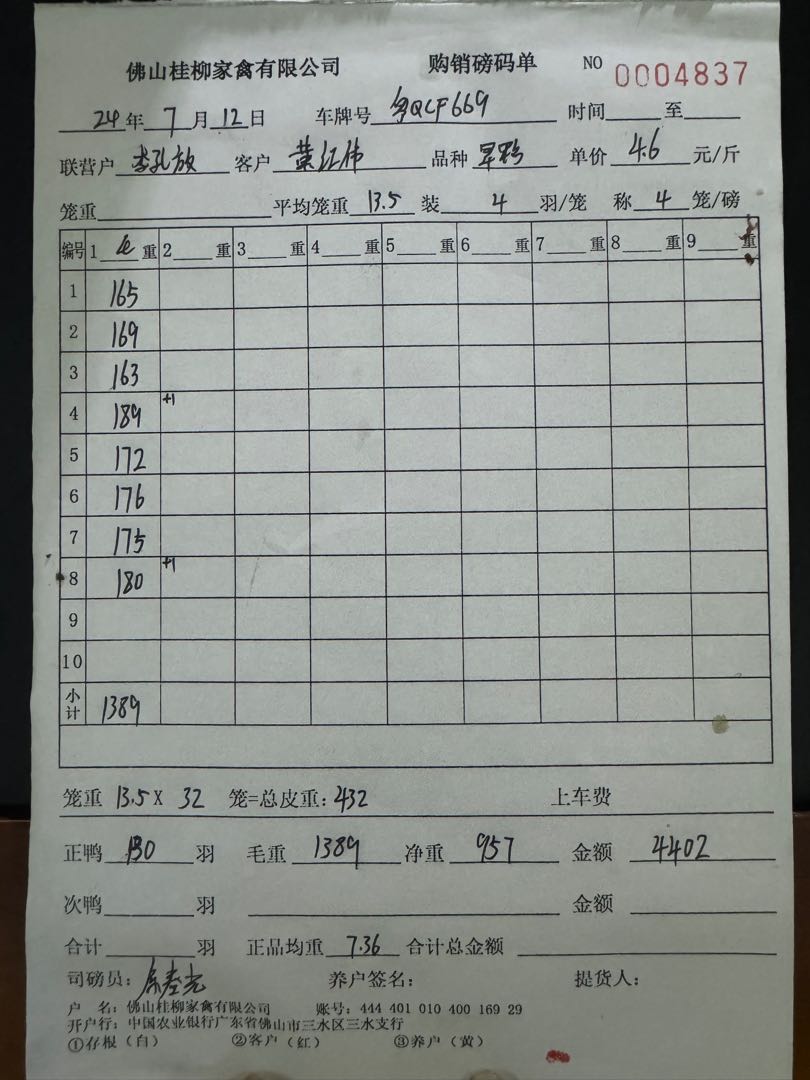 佛山桂柳家禽有限公司 购销磅码单 NO 0004837
24年7月12日 车牌号 粤QLF669 时间 至
联营户 李孔放 客户 黄红伟 品种 单价 4.6 元/斤
笼重 平均笼重 13.5 装 4 羽/笼 称 4 笼/磅
编号 1 重 2 重 3 重 4 重 5 重 6 重 7 重 8 重 9 重
1 165
2 169
3 163
4 189 +1
5 172
6 176
7 175
8 180 +1
9
10
小计 1389
笼重 13.5 X 32 笼=总皮重: 432 上车费
正鸭 130 羽 毛重 1389 净重 957 金额 4402
次鸭 羽 金额
合计 羽 正品均重 7.36 合计总金额
司磅员: 养户签名: 提货人:
户 名: 佛山桂柳家禽有限公司 账号: 444 401 010 400 169 29
开户行: 中国农业银行广东省佛山市三水区三水支行
①存根(白) ②客户(红) ③养户(黄)